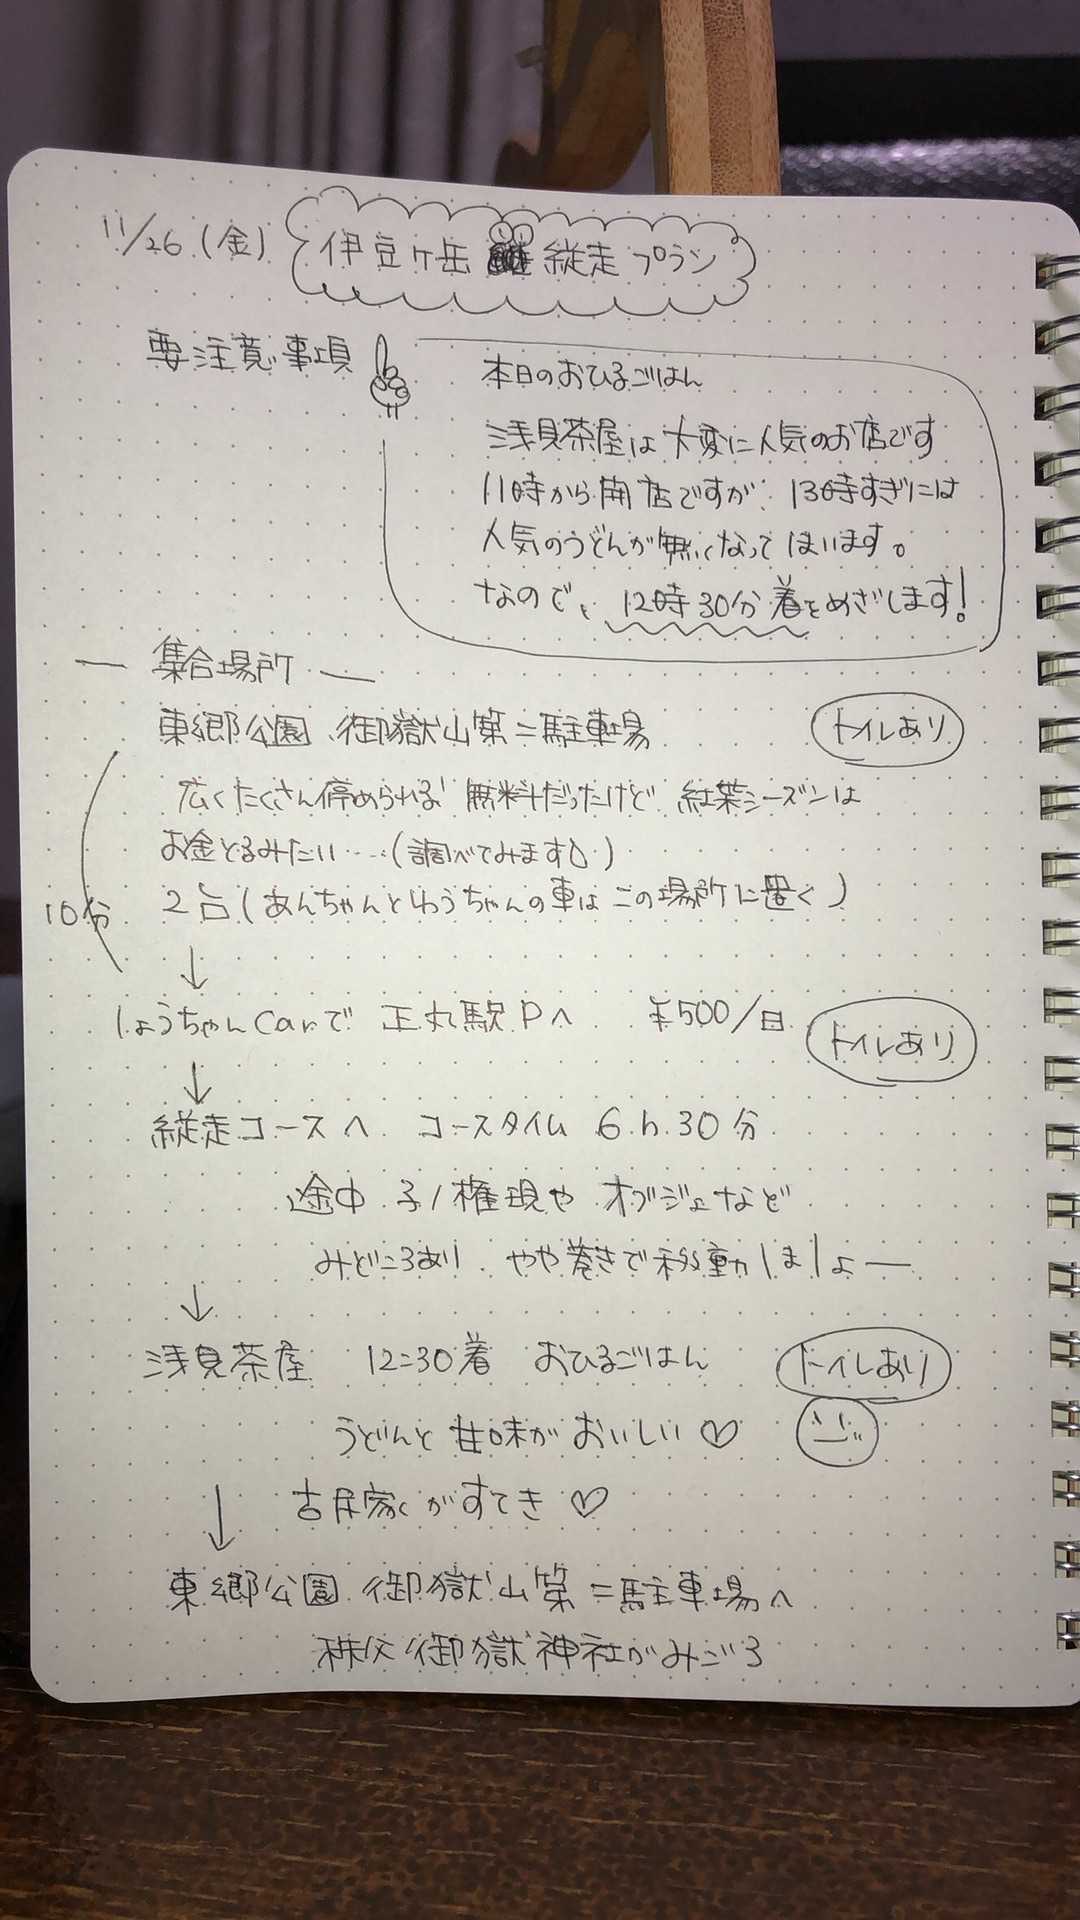 11/26(金) 伊豆ヶ岳 縦走プラン
要注意事項
本日のおひるごはん
浅見茶屋は大変に人気のお店です
11時から開店ですが、13時すぎには
人気のうどんが無くなってしまいます。
なので、12時30分着をめざします!
― 集合場所 ―
東郷公園 御獄山第二駐車場 トイレあり
広くたくさん停められる! 無料だったけど 紅葉シーズンは
お金とるみたい……(調べてみます)
10分 2台(あんちゃんと うちゃんの車は この場所に置く)
↓
しょうちゃんCarで 正丸駅Pへ ¥500/日 トイレあり
↓
縦走コースへ コースタイム 6h30分
途中 子ノ権現や オブジェなど
みどころあり やや巻きで移動しましょー
↓
浅見茶屋 12:30着 おひるごはん トイレあり
うどんと甘味がおいしい♡
↓ 古民家がすてき♡
東郷公園 御獄山第二駐車場へ
秩父御獄神社がみごろ